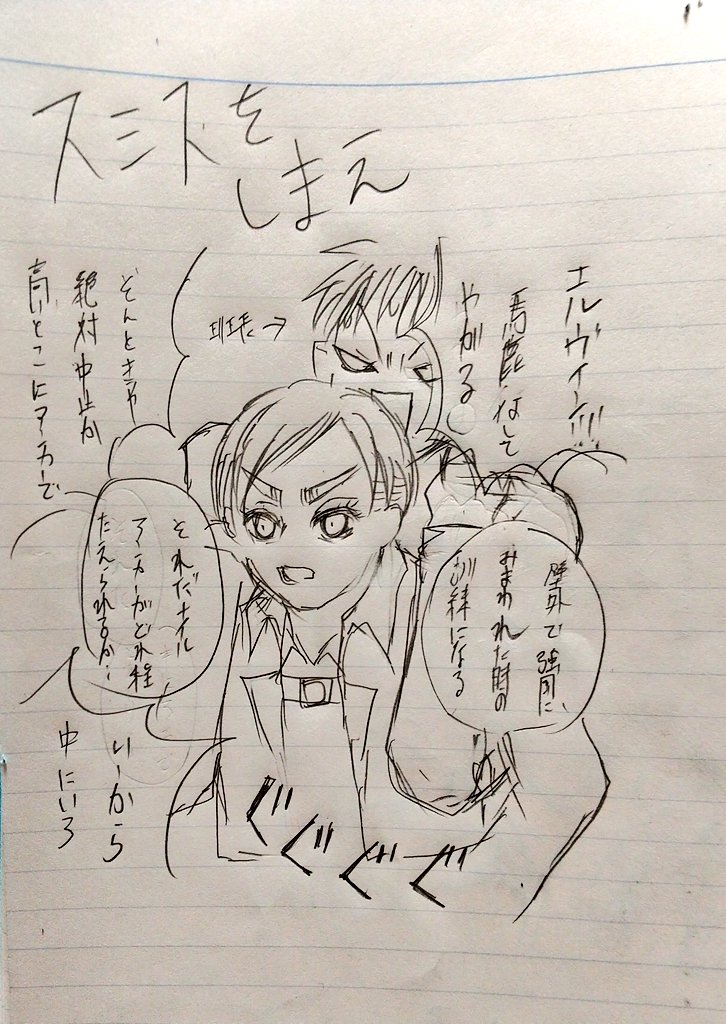 スミスを
しまえ
エルヴィン!!!
馬鹿なして
やがる
班長→
壁外で強風に
みまわれた時の
訓練になる
そんときゃ
絶対中止か
高いとこにアンカーで
それだナイル
アンカーがどれ程
たえられるか…
いーから
中にいろ
ぐぐぐぐ